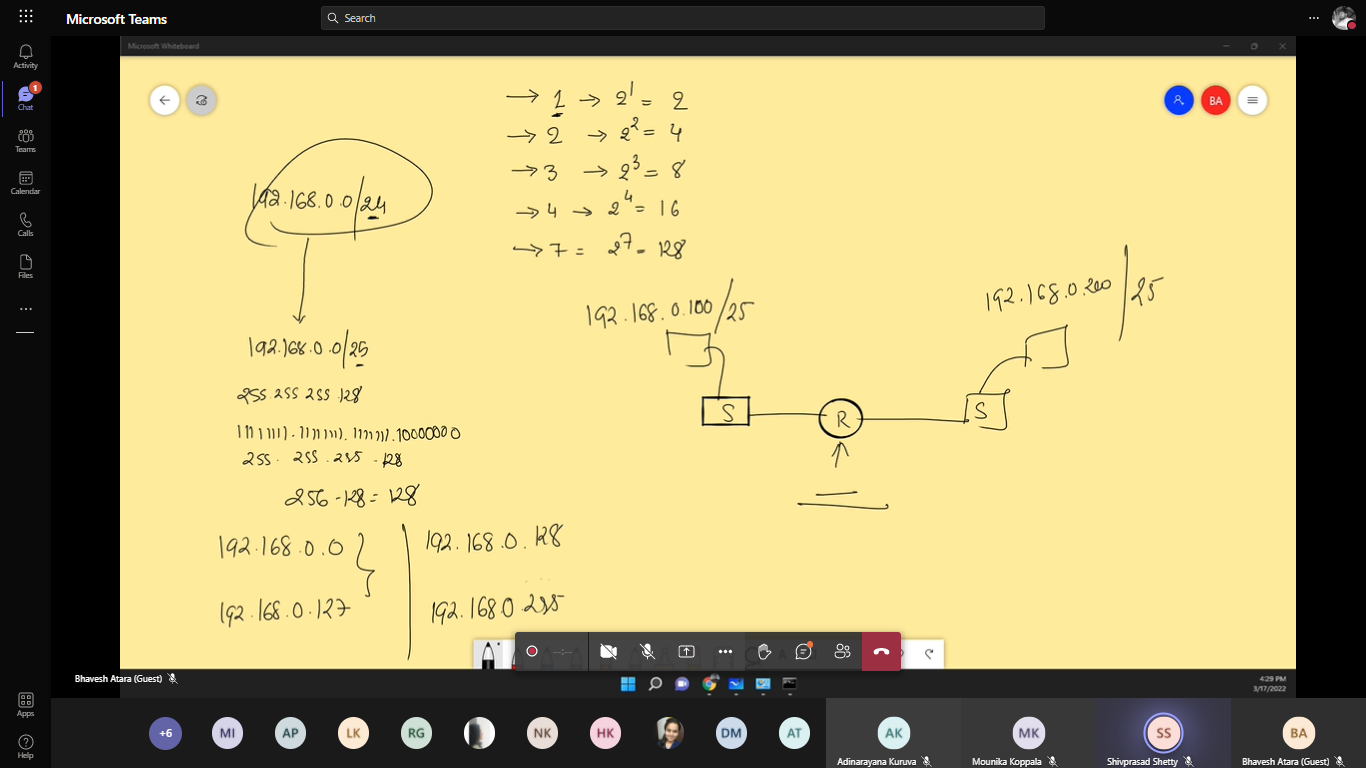 Microsoft Teams
Search
Activity
1
Chat
Teams
Calendar
Calls
Files
Apps
Help
Microsoft Whiteboard
BA
→ 1 → 2^1 = 2
→ 2 → 2^2 = 4
→ 3 → 2^3 = 8
→ 4 → 2^4 = 16
→ 7 = 2^7 = 128
192.168.0.0/24
192.168.0.0/25
255.255 255.128
11111111.11111111.11111111.10000000
255. 255.255.128
256-128=128
192.168.0.0
192.168.0.127
192.168.0.128
192.168.0.255
192.168.0.100/25
192.168.0.200/25
S
R
S
Bhavesh Atara (Guest)
4:29 PM
3/17/2022
+6
MI
AP
LK
RG
NK
HK
DM
AT
AK
Adinarayana Kuruva
MK
Mounika Koppala
SS
Shivprasad Shetty
BA
Bhavesh Atara (Guest)